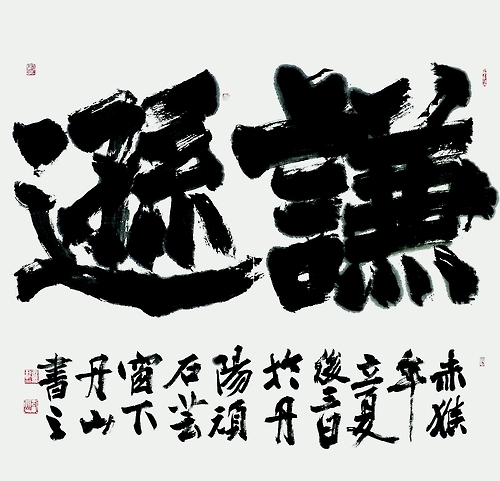 謙遜
赤猴
年
立夏
後三日
於丹
陽頑
石芸
窗下
丹山
書之